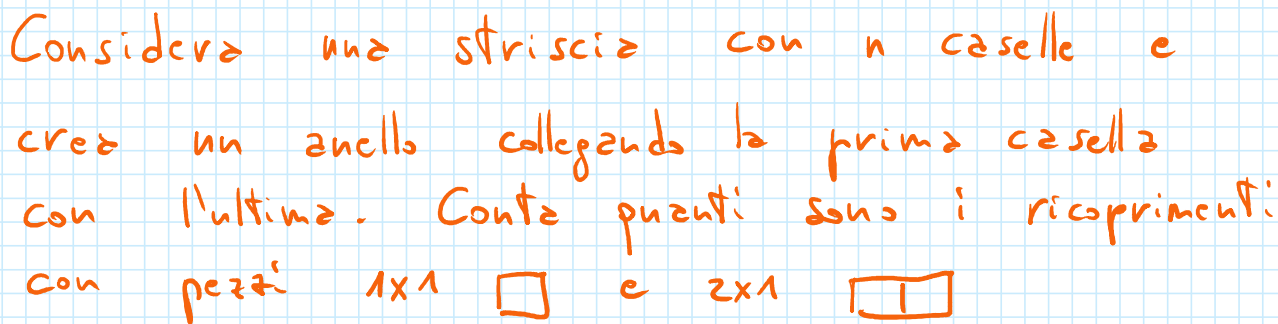 Considera una striscia con n caselle e
crea un anello collegando la prima casella
con l'ultima. Conta quanti sono i ricoprimenti
con pezzi 1x1 e 2x1